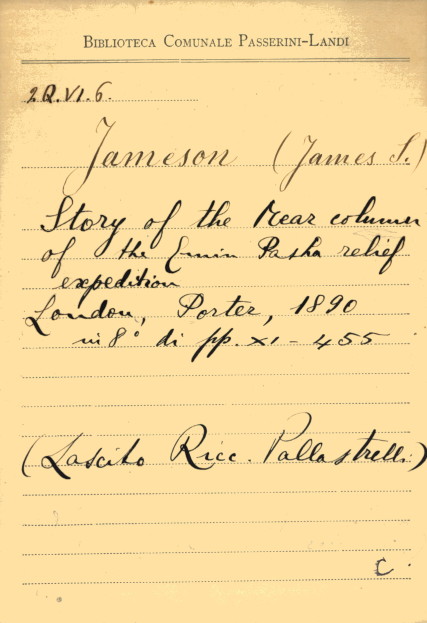 BIBLIOTECA COMUNALE PASSERINI-LANDI
2Q.VI.6.
Jameson (James S.)
Story of the Rear column
of the Emin Pasha relief
expedition
London, Porter, 1890
in 8° di pp. XI - 455
(Lascito Ricc. Pallastrelli)
C.